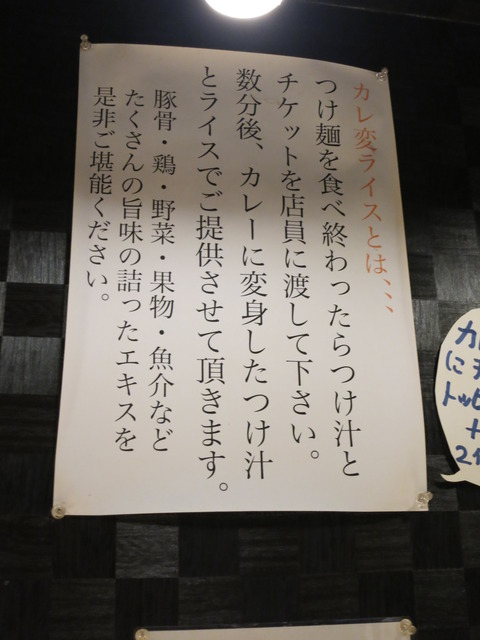 カレ変ライスとは、、、
つけ麺を食べ終わったらつけ汁と
チケットを店員に渡して下さい。
数分後、カレーに変身したつけ汁
とライスでご提供させて頂きます。
豚骨・鶏・野菜・果物・魚介など
たくさんの旨味の詰ったエキスを
是非ご堪能ください。